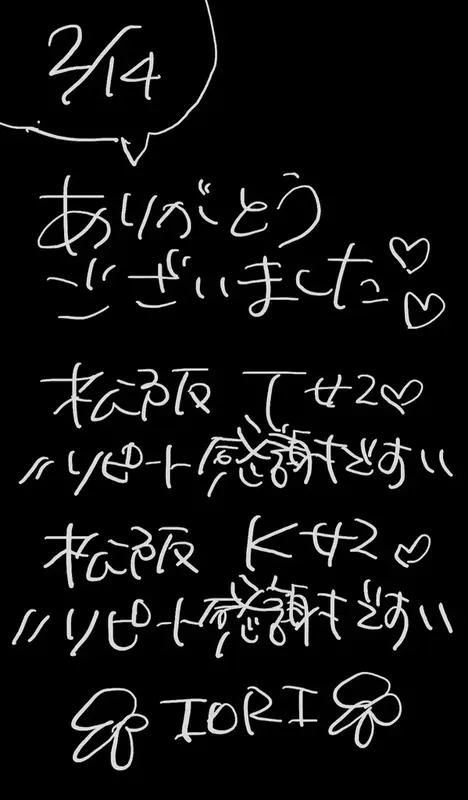 2/14
ありがとう
ございました♡♡
松阪 T様♡
〃リピート感謝です〃
松阪 K様♡
〃リピート感謝です〃
IORI